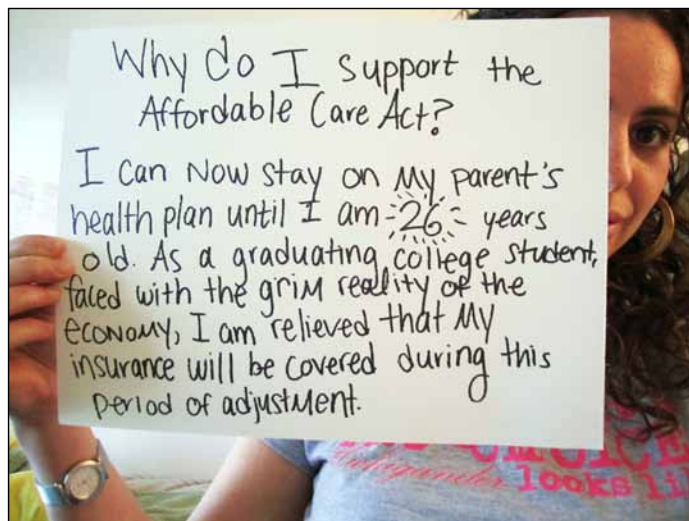 Why do I support the
Affordable Care Act?
I can now stay on my parent's
health plan until I am 26 years
old. As a graduating college student,
faced with the grim reality of the
economy, I am relieved that my
insurance will be covered during this
period of adjustment.
looks li